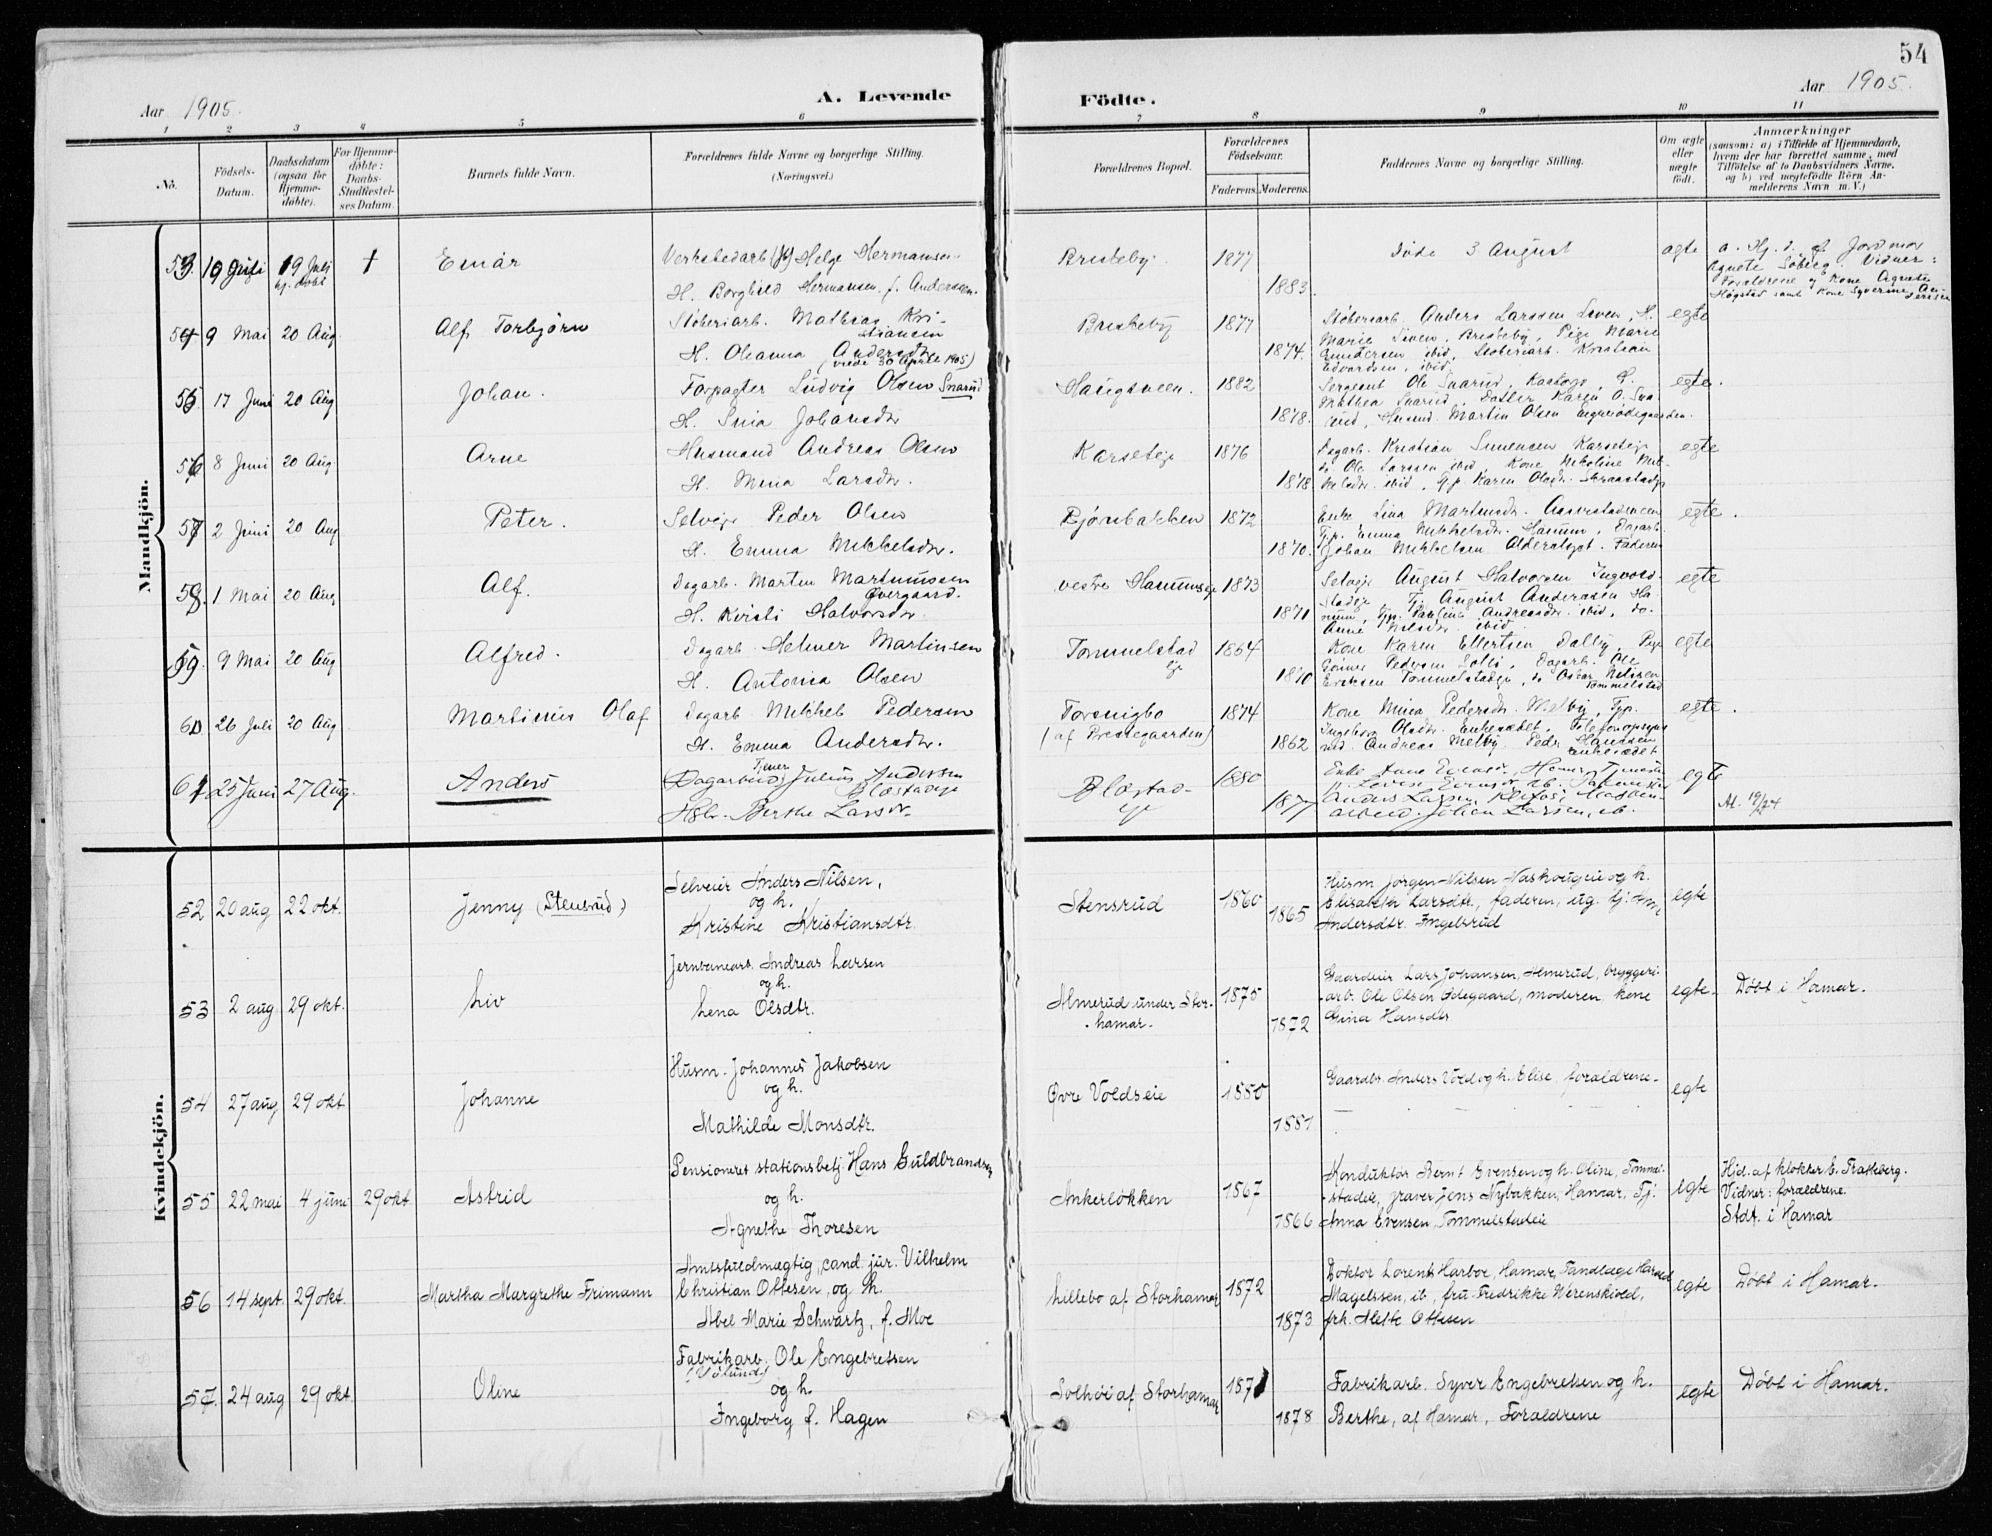 54
Aar 1905.
A. Levende
Födte.
Aar 1905.
1 2 3 4 5 6 7 8 9 10 11
No.
Födsels-Datum.
Daabsdatum (ogsaa for Hjemme-døbte).
For Hjemme-døbte: Daabs-Stadfæstel-ses Datum.
Barnets fulde Navn.
Forældrenes fulde Navne og borgerlige Stilling.
(Næringsvei.)
Forældrenes Bopæl.
Forældrenes Födselsaar.
Faderens. Moderens.
Faddernes Navne og borgerlige Stilling.
Om ægte eller uægte födt.
Anmærkninger
(saasom: a) i Tilfælde af Hjemmedaab,
hvem der har forrettet samme, med
Tilföielse af to Daabsvidners Navne,
og b) ved uægtefödte Börn An-
melderens Navn m. V.)
Mandkjön.
53. 10 Juli 19 Juli hj. døbt † Einar
Verkstedarb. Helge Hermansen
H. Borghild Hermansen f. Andersen
Briskeby 1877 1883
Døde 3 August
egte
a. Hj. d. af Jordmor
Agnete Søberg. Vidner:
Forældrene og Kone Agnete
Høgstad samt Kone Syverine An-
dersen
54 9 Mai 20 Aug. Alf Torbjørn
Støberiarb. Mathias Kri-
stiansen
H. Oleanna Andersdtr.
(viede 30 April 1905)
Briskeby 1877 1874.
Støberiarb. Anders Larssen Liven, H.
Marie Liven, Briskeby, Pige Marie
Gundersen ibid, Støberiarb. Kristian
Edvardsen, ibid.
egte
55. 17 Juni 20 Aug Johan.
Forpagter Ludvig Olsen Snarud
H. Sina Johansdtr
Haugsveen. 1882 1878.
Sergeant Ole Snarud,
Mathea Snarud, Datter Karen O. Sna-
rud, Husmd. Martin Olsen
egte.
56 8 Juni 20 Aug. Arne
Husmand Andreas Olsen
H. Mina Larsdtr.
Karseteje 1876 1878.
Dagarb. Kristian Simensen Karseteje
do Ole Larssen ibid, Kone Nikoline Mik-
kelsdtr. ibid, Gp. Karen Olsdtr.
egte
57 2 Juni 20 Aug Peter.
Selveje Peder Olsen
H. Emma Mikkelsdtr.
Bjørnbakken 1872 1870.
Enke Lina Martinsdtr.
Tjp. Emma Mikkelsdtr. Hanum, Dagarb.
Johan Mikkelsen Alderslyst. Faderen
egte.
58. 1 Mai 20 Aug Alf.
Dagarb. Martin Martinussen
Øvergaard.
H. Kirsti Halvorsdtr.
vestre Hanumseje 1873 1871
Selveje August Halvorsen
Tj. August Andersen Ha-
num, Tjp. Pauline Andreasdtr. ibid, do.
Anne Nilsdtr. ibid.
egte
59. 9 Mai 20 Aug Alfred.
Dagarb. Helmer Martinsen
H. Antonia Olsen
Tommelstad eje 1864 1870
Kone Karen Ellertsen Dalby, Pige
Gøinie Pedersen Lolli, Dagarb. Ole
Eriksen Tommelstadeje, do Oscar Nilssen
Tommelstad
egte
60 26 Juli 20 Aug Martinius Olaf
Dagarb. Mikkel Pedersen
H. Emma Andersdtr.
Torsnigbo
(af Prestegaarden)
1874 1862
Kone Mina Pedersdtr. Melby, Tjp.
Ingeborg Olsdtr. Enkesædet, Telefonopsyns
md. Andreas Melby, Peder Hanssen
Enkesædet
egte.
61 25 Juni 27 Aug. Anders
(Dagarbeid) Tjener Julius Andersen
Blæstadeje
Hstr. Berthe Larsdtr.
Blæstad-eje 1880 1877
Anders Larsen
arbeid. Johan Larsen, ib.
egte
At. 19/7 24
Kvindekjön.
52 20 aug 22 okt. Jenny (Stensrud)
Selveier Anders Nilsen,
og h.
Kristine Kristiansdtr.
Stensrud 1860 1865
Husm Jørgen Nilsen Naskougeie og h.
Elisabeth Larsdtr., faderen, ug. tj.
Andersdtr. Ingelsrud
egte
53 2 aug 29 okt. Liv
Jernbanearb. Andreas Larsen
og h.
Lena Olsdtr.
Almerud under Stor-
hamar. 1875 1872
Gaardeier Lars Johansen, Almerud, bryggeri-
arb. Ole Olsen Ødegaard, moderen, kone
Gina Hansdtr.
egte.
Døbt i Hamar.
54 27 aug 29 okt Johanne
Husm. Johannes Jakobsen
og h.
Mathilde Monsdtr.
Øvre Voldseie 1880 1881
Gaardbr. Anders Vold og h. Elise, forældrene.
egte
55 22 mai 4 juni 29 okt Astrid
Pensioneret stationsbetj. Hans Guldbrandsen
og h.
Agnethe Thoresen
Ankerløkken 1867 1866
Konduktør Bernt Evensen og h. Oline, Tommel-
stadeie, graver Jens Nybakken, Hamar, Tj.
Anna Evensen, Tommelstadeie
egte
Hjd. af klokker E. Fraskberg.
Vidner: forældrene.
Stdf. i Hamar
56 14 sept. 29 okt. Martha Margrethe Frimann
Amtsfuldmægtig, cand. jur. Vilhelm
Christian Ottesen, og h.
Abel Marie Schwartz, f. Moe
Lillebo af Storhamar 1872 1873
Doktor Lorentz Harboe, Hamar, Tandlæge Harald
Magelssen, ib., fru Fredrikke Werenskiold,
frk. Mette Ottesen
egte
Døbt i Hamar.
57. 24 aug 29 okt. Oline
Fabrikarb. Ole Engebretsen
(Vølund)
og h.
Ingeborg f. Hagen
Solhøi af Storhamar 1871 1878
Fabrikarb. Syver Engebretsen og h.
Berthe, af Hamar, Forældrene
egte
Døbt i Hamar.